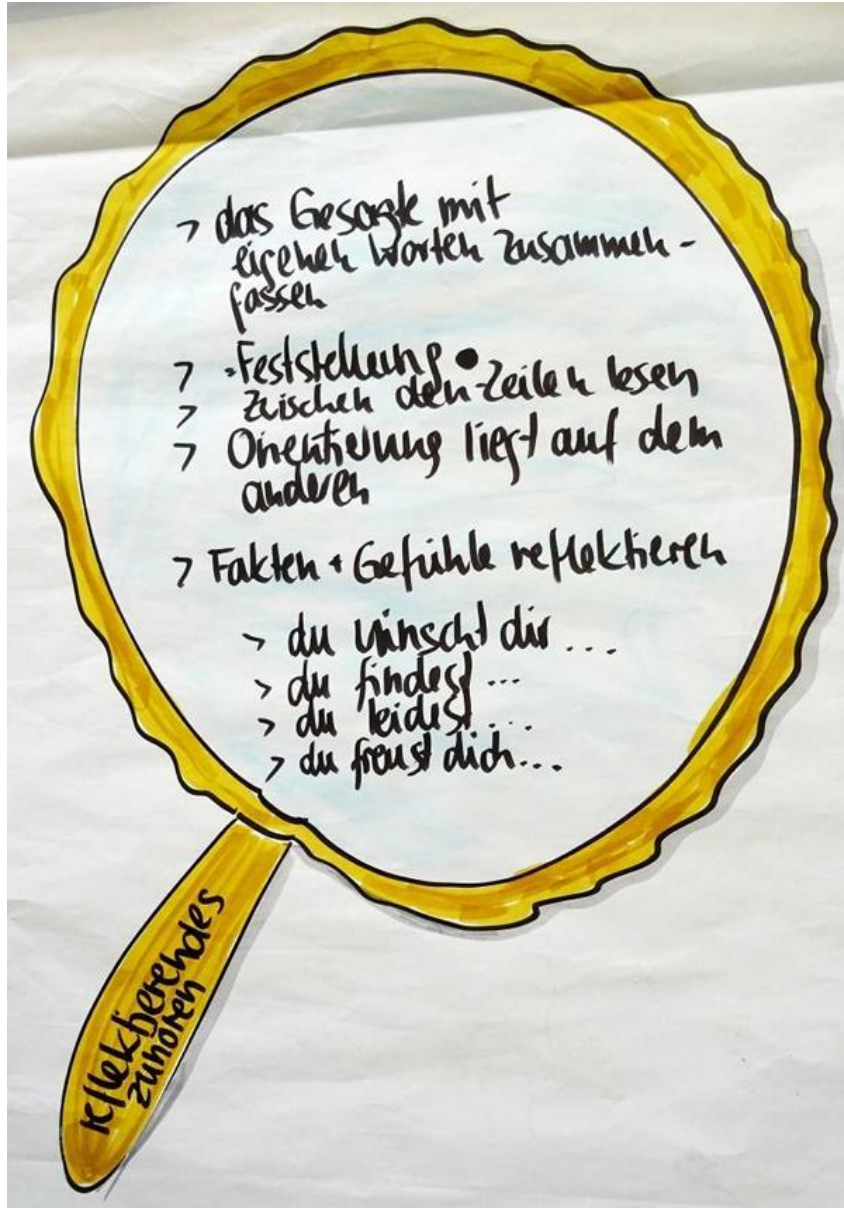 > das Gesagte mit
eigenen Worten zusammen-
fassen
> Feststellung •
> zwischen den Zeilen lesen
> Orientierung liegt auf dem
anderen
> Fakten + Gefühle reflektieren
> du wünscht dir ...
> du findest ...
> du leidest ...
> du freust dich ...
reflektierendes
zuhören